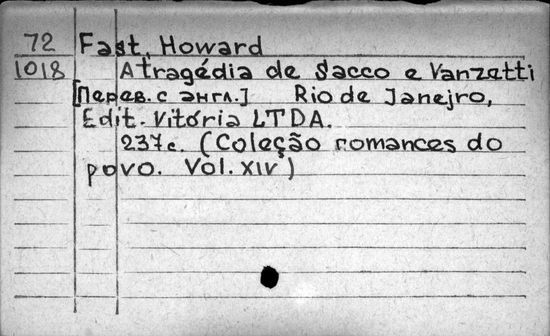 72 Fast, Howard
1018 A tragédia de Sacco e Vanzetti
[Перев. с англ.] Rio de Janejro,
Edit. Vitória LTDA.
237с. (Coleção romances do
povo. Vol. XIV)